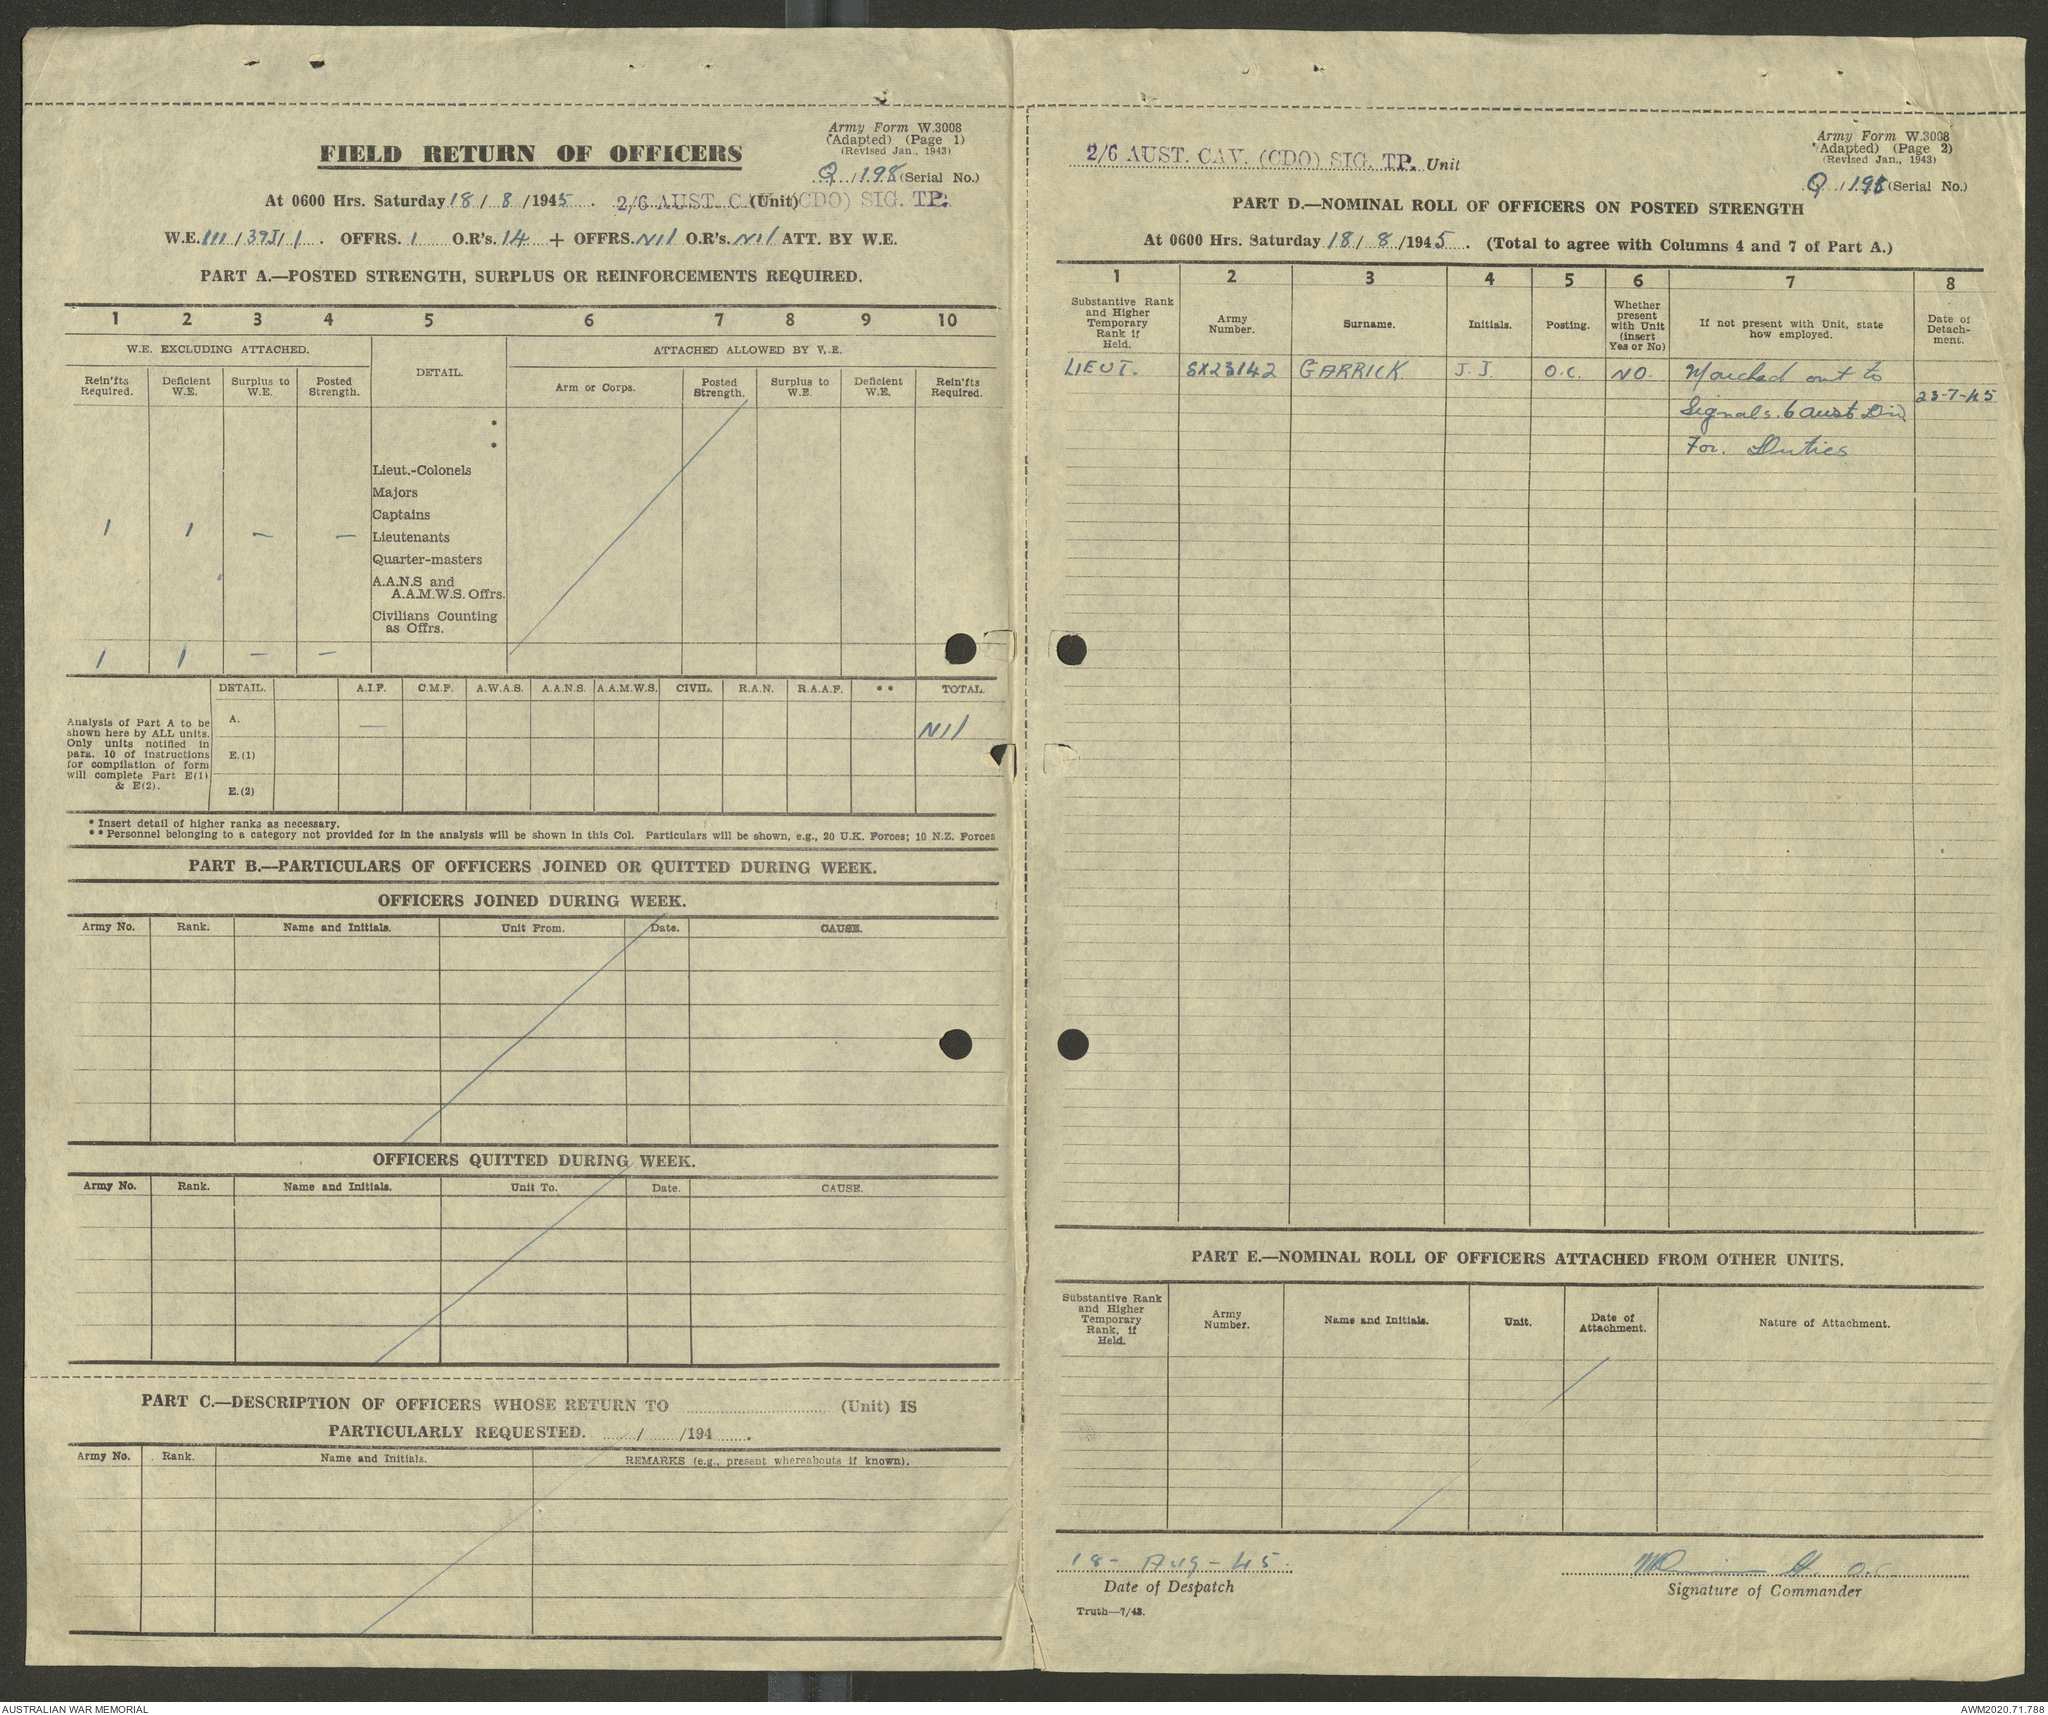 Army Form W.3008
(Adapted) (Page 1)
(Revised Jan., 1943)
FIELD RETURN OF OFFICERS
Q / 198 (Serial No.)
At 0600 Hrs. Saturday 18 / 8 / 1945 . 2/6 AUST. CAV. (CDO) SIG. TP. (Unit)
W.E. III / 39J / 1 . OFFRS. 1 O.R's. 14 + OFFRS. Nil O.R's. Nil ATT. BY W.E.
PART A.—POSTED STRENGTH, SURPLUS OR REINFORCEMENTS REQUIRED.
1 2 3 4 5 6 7 8 9 10
W.E. EXCLUDING ATTACHED. DETAIL. ATTACHED ALLOWED BY W.E.
Rein'fts Required. Deficient W.E. Surplus to W.E. Posted Strength. Arm or Corps. Posted Strength. Surplus to W.E. Deficient W.E. Rein'fts Required.
*
*
Lieut.-Colonels
Majors
Captains
1 1 — — Lieutenants
Quarter-masters
A.A.N.S and
A.A.M.W.S. Offrs.
Civilians Counting
as Offrs.
1 1 — —
DETAIL. A.I.F. C.M.F. A.W.A.S. A.A.N.S. A.A.M.W.S. CIVIL. R.A.N. R.A.A.F. ** TOTAL.
Analysis of Part A to be
shown here by ALL units.
Only units notified in
para. 10 of instructions
for compilation of form
will complete Part E(1)
& E(2).
A. — Nil
E.(1)
E.(2)
* Insert detail of higher ranks as necessary.
** Personnel belonging to a category not provided for in the analysis will be shown in this Col. Particulars will be shown, e.g., 20 U.K. Forces; 10 N.Z. Forces
PART B.—PARTICULARS OF OFFICERS JOINED OR QUITTED DURING WEEK.
OFFICERS JOINED DURING WEEK.
Army No. Rank. Name and Initials. Unit From. Date. CAUSE.
OFFICERS QUITTED DURING WEEK.
Army No. Rank. Name and Initials. Unit To. Date. CAUSE.
PART C.—DESCRIPTION OF OFFICERS WHOSE RETURN TO (Unit) IS
PARTICULARLY REQUESTED. / /194 .
Army No. Rank. Name and Initials. REMARKS (e.g., present whereabouts if known).
Army Form W.3008
(Adapted) (Page 2)
(Revised Jan., 1943)
2/6 AUST. CAV. (CDO) SIG. TP. Unit
Q / 198 (Serial No.)
PART D.—NOMINAL ROLL OF OFFICERS ON POSTED STRENGTH
At 0600 Hrs. Saturday 18 / 8 / 1945 . (Total to agree with Columns 4 and 7 of Part A.)
1 2 3 4 5 6 7 8
Substantive Rank and Higher Temporary Rank if Held. Army Number. Surname. Initials. Posting. Whether present with Unit (insert Yes or No) If not present with Unit, state how employed. Date of Detach-ment.
LIEUT. SX23142 GARRICK J. J. O.C. NO. Marched out to
Signals. 6 Aust Div 23-7-45
For. Duties
PART E.—NOMINAL ROLL OF OFFICERS ATTACHED FROM OTHER UNITS.
Substantive Rank and Higher Temporary Rank, if Held. Army Number. Name and Initials. Unit. Date of Attachment. Nature of Attachment.
18- Aug-45. O.C.
Date of Despatch Signature of Commander
Truth—7/43.
AUSTRALIAN WAR MEMORIAL AWM2020.71.788